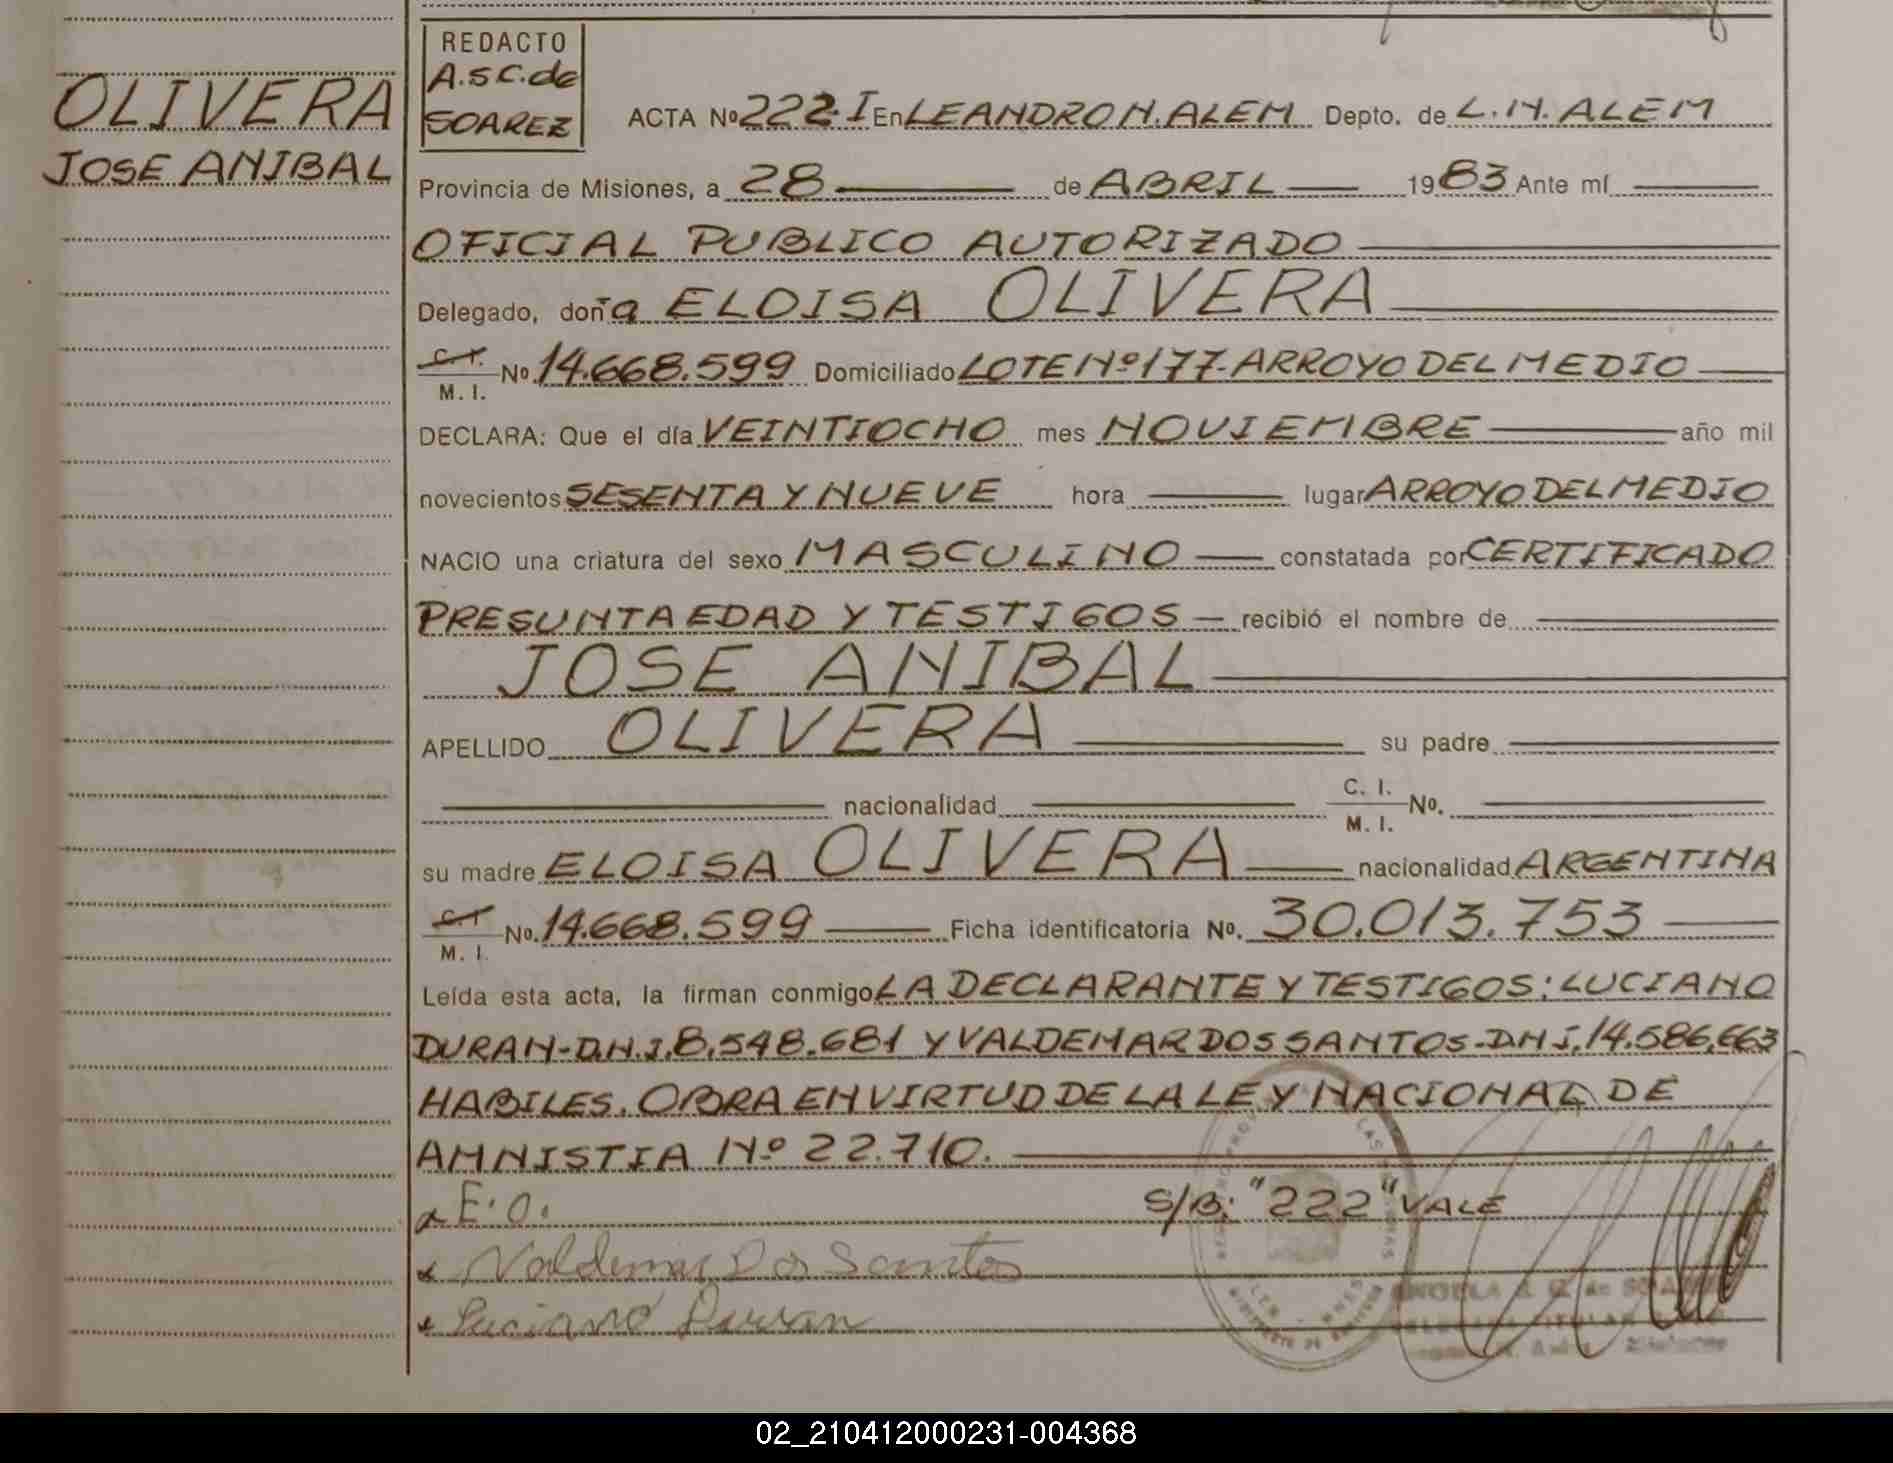 OLIVERA
JOSE ANIBAL
REDACTO
A.S.C. de
SOAREZ
ACTA Nº 222-I En LEANDRO N. ALEM Depto. de L. N. ALEM
Provincia de Misiones, a 28 de ABRIL 1983 Ante mí
OFICIAL PUBLICO AUTORIZADO
Delegado, doña ELOISA OLIVERA
C. I.
M. I. Nº. 14.668.599 Domiciliado LOTE Nº 177-ARROYO DEL MEDIO
DECLARA: Que el día VEINTIOCHO mes NOVIEMBRE año mil
novecientos SESENTA Y NUEVE hora lugar ARROYO DEL MEDIO
NACIO una criatura del sexo MASCULINO constatada por CERTIFICADO
PRESUNTA EDAD Y TESTIGOS — recibió el nombre de
JOSE ANIBAL
APELLIDO OLIVERA su padre
nacionalidad C. I.
M. I. Nº.
su madre ELOISA OLIVERA nacionalidad ARGENTINA
C. I.
M. I. Nº. 14.668.599 Ficha identificatoria Nº. 30.013.753
Leída esta acta, la firman conmigo LA DECLARANTE Y TESTIGOS: LUCIANO
DURAN-D.N.I. 8.548.681 Y VALDEMAR DOS SANTOS-D.N.I. 14.586.663
HABILES. OBRA EN VIRTUD DE LA LEY NACIONAL DE
AMNISTIA Nº 22.710.
E. O.
S/B: "222" VALE
Valdemar Dos Santos
Luciano Duran
02_210412000231-004368